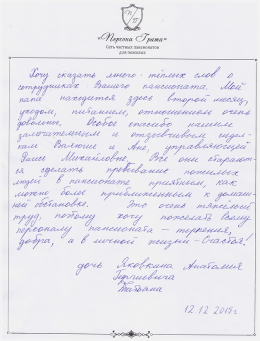 Сеть частных пансионатов
для пожилых
Хочу сказать много тёплых слов о
сотрудниках Вашего пансионата. Мой
папа находится здесь второй месяц,
уходом, питанием, отношением очень
довольны. Особое спасибо нашим
замечательным и отзывчивым
Валюше и Ане, управляющей
Раисе Михайловне. Все они стараются
сделать пребывание пожилых
людей в пансионате приятным, как
можно более приближенным к домаш-
ней обстановке. Это очень тяжёлый
труд, поэтому хочу пожелать всему
персоналу пансионата – терпения,
добра, а в личной жизни – Счастья!
дочь Яковкина Анатолия
Татьяна
12.12.2015г.